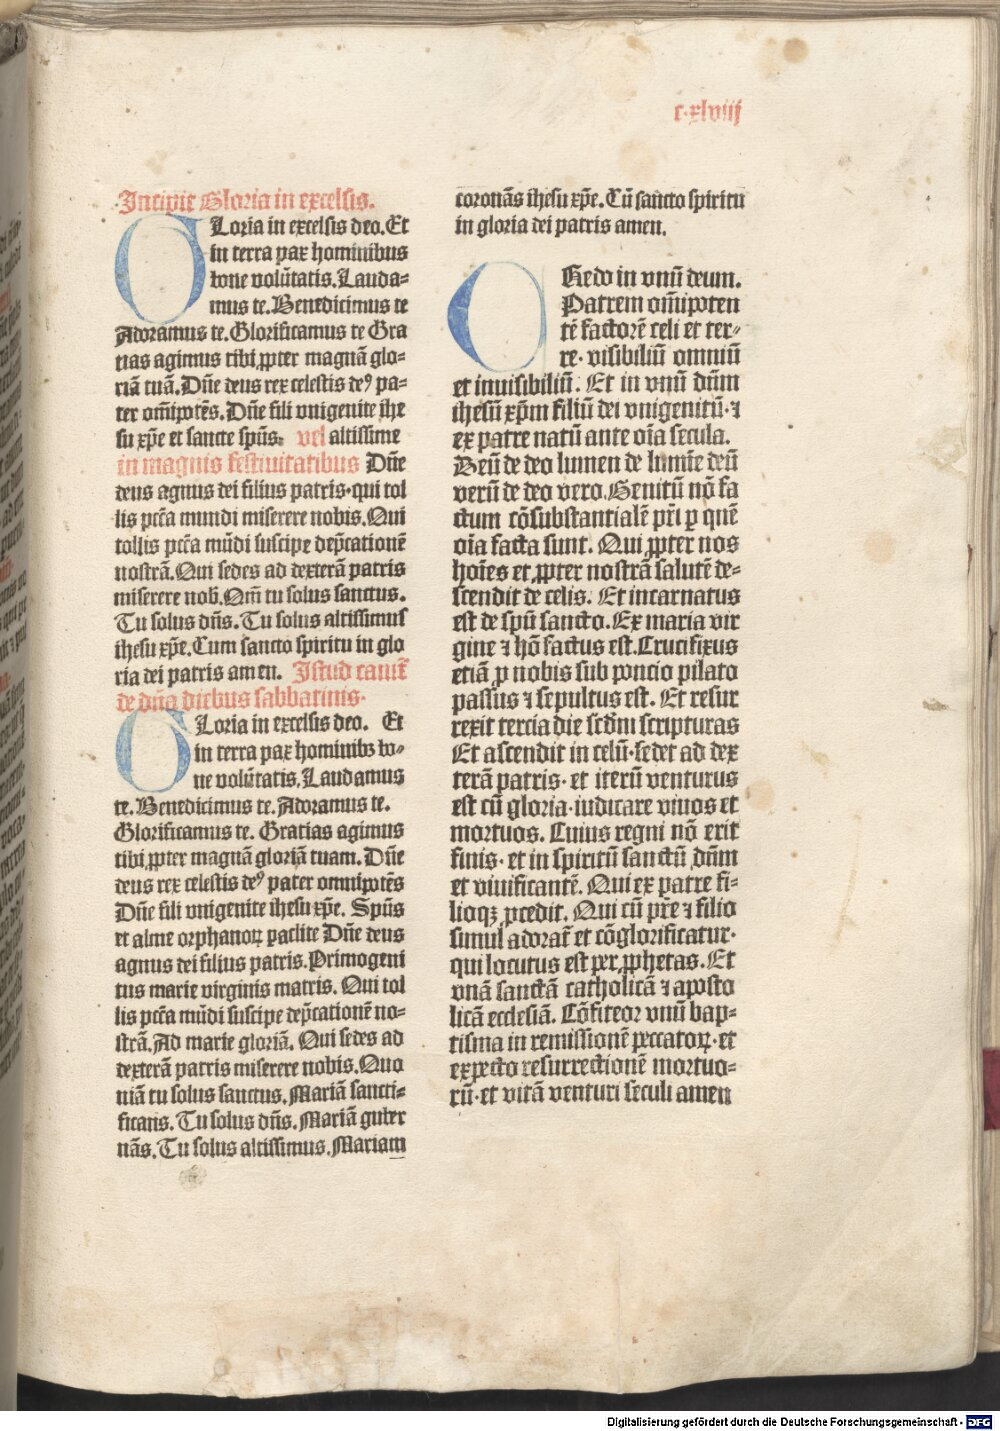 c·xlviij
Incipit Gloria in excelsis.
GLoria in excelsis deo. Et
in terra pax hominibus
bone volūtatis. Lauda-
mus te. Benedicimus te
Adoramus te. Glorificamus te Gra
tias agimus tibi ꝓpter magnā glo-
riā tuā. Dn̄e deus rex celestis deꝰ pa-
ter om̄ipotēs. Dn̄e fili vnigenite ihe
su xp̄e et sancte spūs. vel altissime
in magnis festiuitatibus Dn̄e
deus agnus dei filius patris·qui tol
lis pctā mundi miserere nobis. Qui
tollis pctā mūdi suscipe dep̄cationē
nostrā. Qui sedes ad dexterā patris
miserere nob̄. Qm̄ tu solus sanctus.
Tu solus dn̄s. Tu solus altissimus
ihesu xp̄e. Cum sancto spiritu in glo
ria dei patris amen. Istud canit̄
de dn̄a diebus sabbatinis.
GLoria in excelsis deo. Et
in terra pax hominibꝫ bo-
ne volūtatis. Laudamus
te. Benedicimus te. Adoramus te.
Glorificamus te. Gratias agimus
tibi ꝓpter magnā gloriā tuam. Dn̄e
deus rex celestis deꝰ pater omnipotēs
Dn̄e fili vnigenite ihesu xp̄e. Spūs
et alme orphanoꝝ paclite Dn̄e deus
agnus dei filius patris. Primogeni
tus marie virginis matris. Qui tol
lis pctā mūdi suscipe dep̄cationē no-
strā. Ad marie gloriā. Qui sedes ad
dexterā patris miserere nobis. Quo
niā tu solus sanctus. Mariā sancti-
ficans. Tu solus dn̄s. Mariā guber
nās. Tu solus altissimus. Mariam
coronās ihesu xp̄e. Cū sancto spiritu
in gloria dei patris amen.
CRedo in vnū deum.
Patrem om̄ipoten
tē factorē celi et ter-
re· visibiliū omniū
et inuisibiliū. Et in vnū dn̄m
ihesū xp̄m filiū dei vnigenitū·⁊
ex patre natū ante oīa secula.
Deū de deo lumen de lumīe deū
verū de deo vero. Genitū nō fa
ctum cōsubstantialē pr̄i ꝑ quē
oīa facta sunt. Qui ꝓpter nos
hoīes et ꝓpter nostrā salutē de-
scendit de celis. Et incarnatus
est de spū sancto. Ex maria vir
gine ⁊ hō factus est. Crucifixus
etiā ꝓ nobis sub poncio pilato
passus ⁊ sepultus est. Et resur
rexit tercia die scd̄m scripturas
Et ascendit in celū·sedet ad dex
terā patris· et iterū venturus
est cū gloria·iudicare viuos et
mortuos. Cuius regni nō erit
finis· et in spiritū sanctū dn̄m
et viuificantē. Qui ex patre fi-
lioqꝫ ꝓcedit. Qui cū pr̄e ⁊ filio
simul adorat̄ et cōglorificatur·
qui locutus est per ꝓphetas. Et
vnā sanctā catholicā ⁊ aposto
licā ecclesiā. Cōfiteor vnū bap-
tisma in remissionē peccatoꝝ·et
expecto resurrectionē mortuo-
rū·et vitā venturi seculi amen
Digitalisierung gefördert durch die Deutsche Forschungsgemeinschaft - DFG